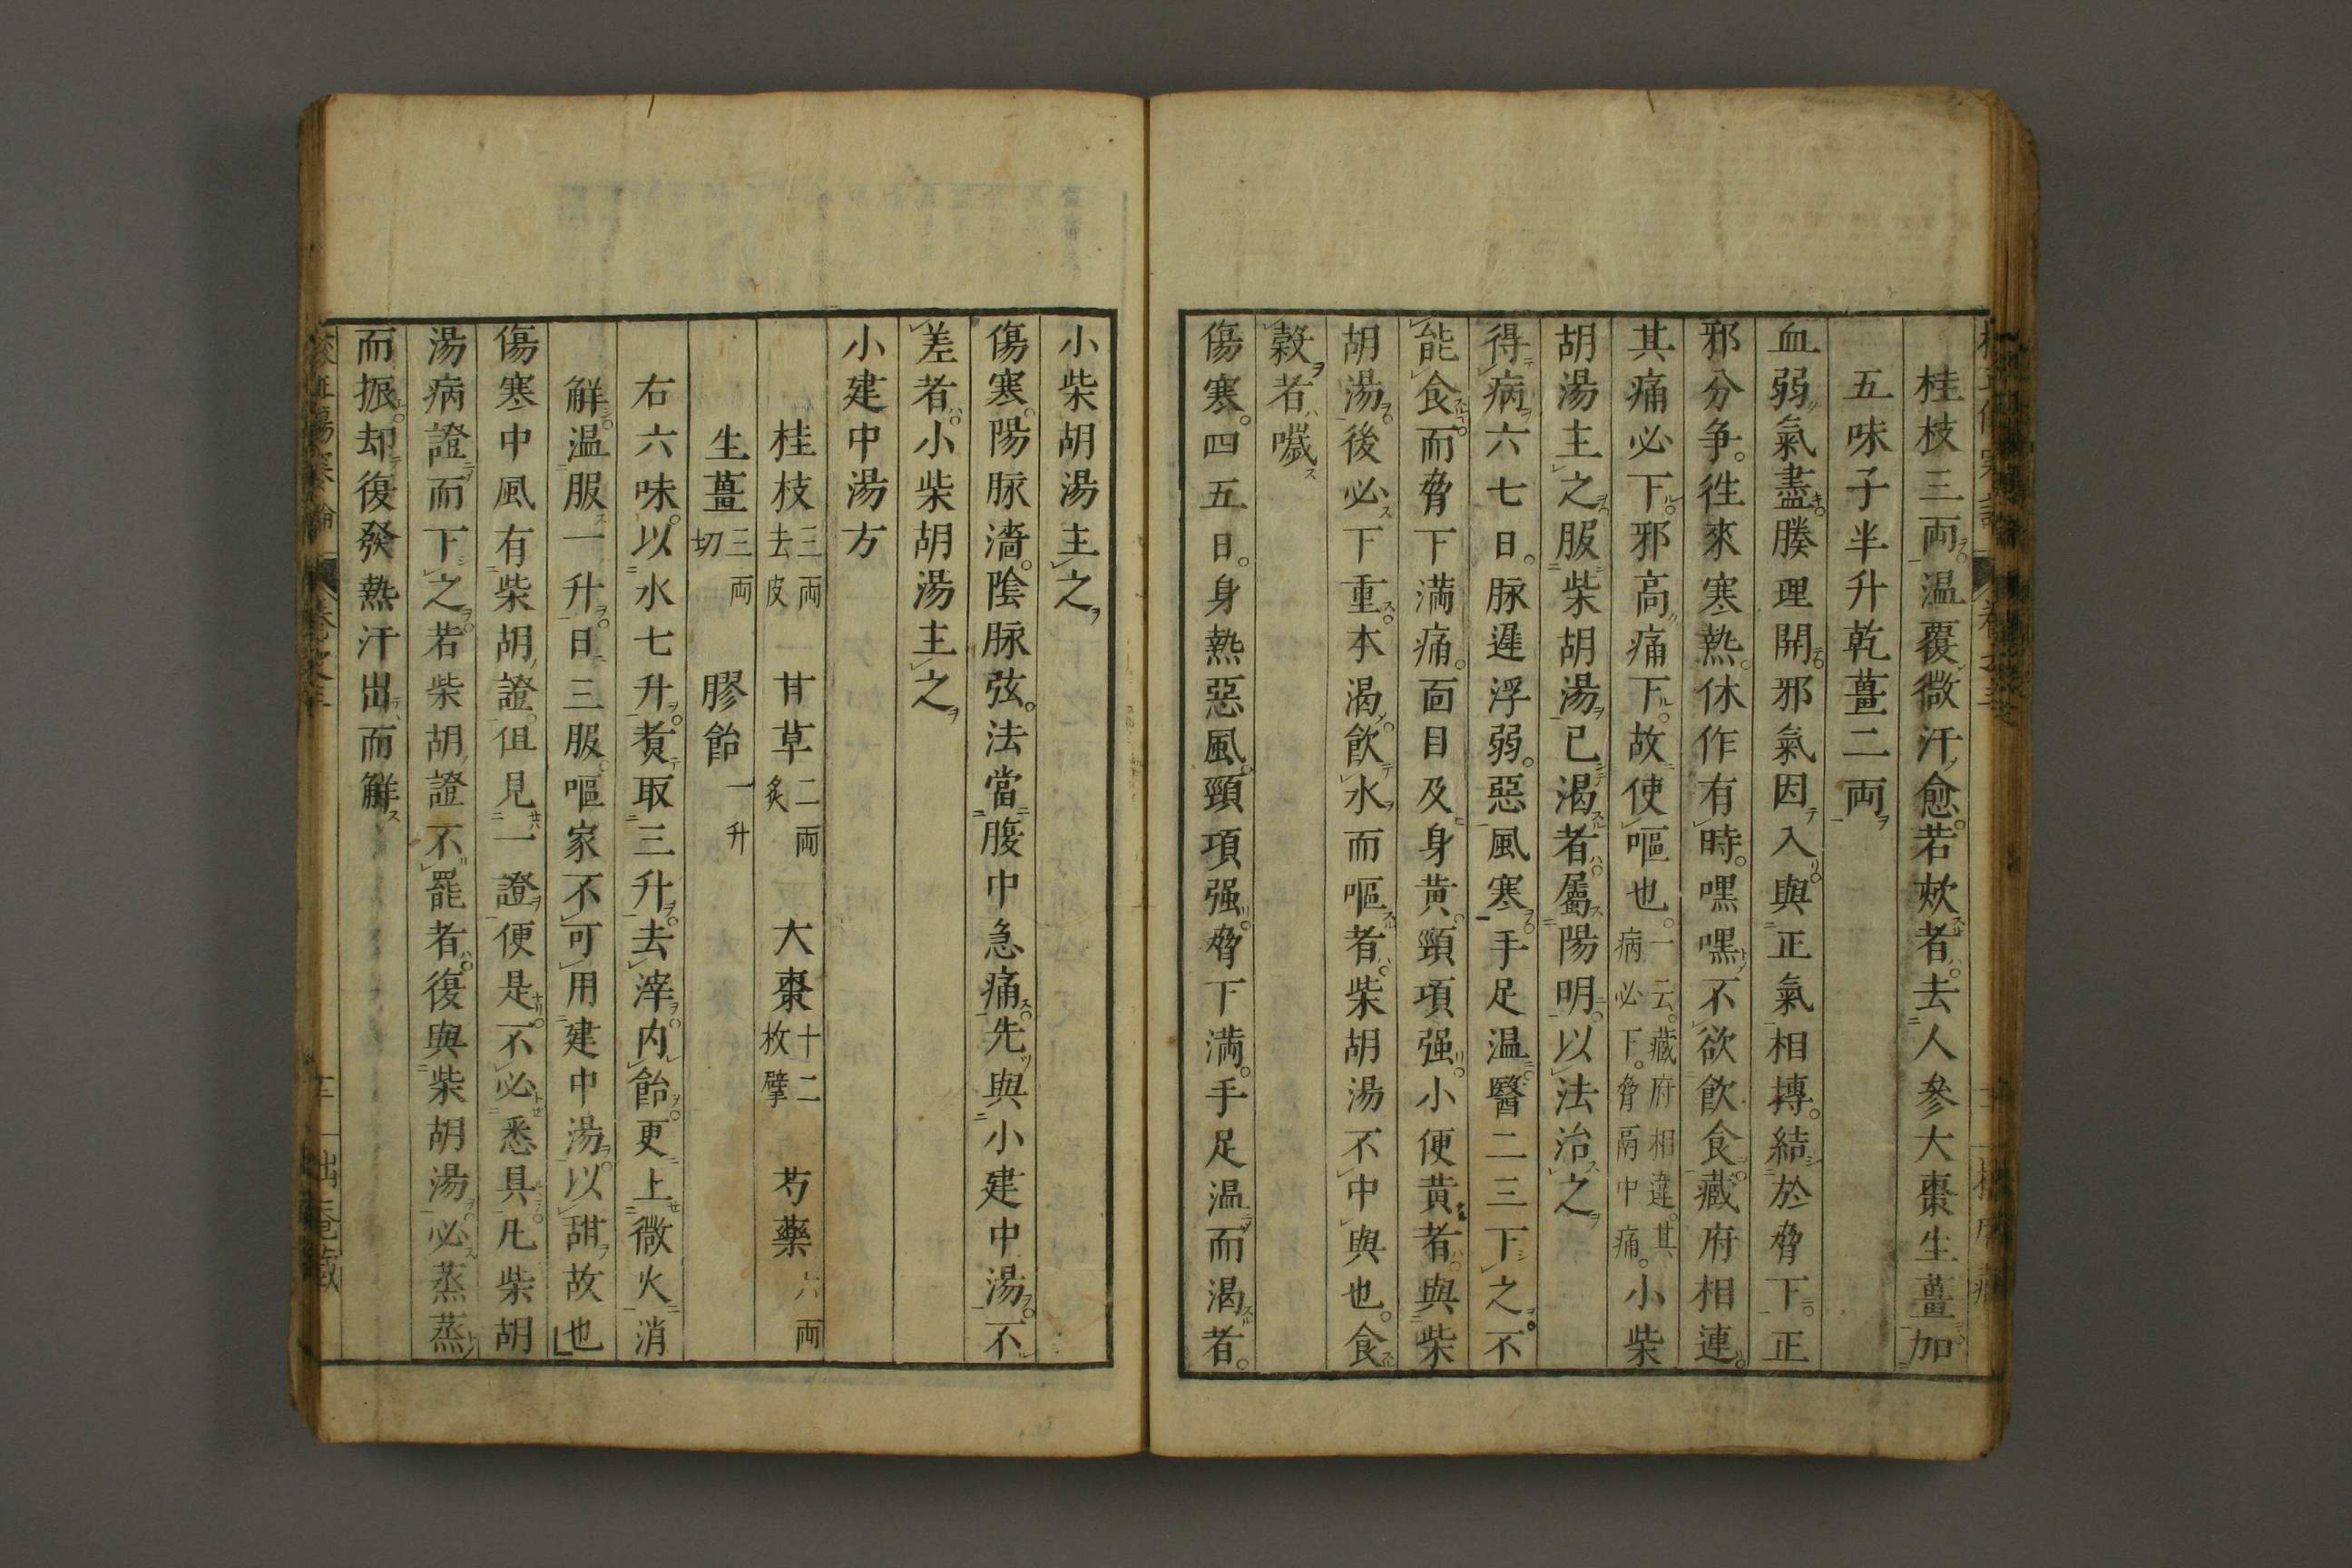 桂枝三両温覆微汗愈若欬者去人參大棗生薑加
五味子半升乾薑二両
血弱氣盡腠理開邪氣因入與正氣相搏結於脅下正
邪分争往來寒熱休作有時嘿嘿不欲飲食藏府相連
其痛必下邪高痛下故使嘔也一云藏府相違其病必下脅鬲中痛小柴
胡湯主之服柴胡湯已渴者屬陽明以法治之
得病六七日脉遲浮弱惡風寒手足温醫二三下之不
能食而脅下満痛面目及身黄頸項强小便黄者與柴
胡湯後必下重本渴飲水而嘔者柴胡湯不中與也食
穀者噦
傷寒四五日身熱惡風頸項强脅下満手足温而渴者
小柴胡湯主之
傷寒陽脉濇陰脉弦法當腹中急痛先與小建中湯不
差者小柴胡湯主之
小建中湯方
桂枝三両去皮 甘草二両炙 大棗十二枚擘 芍藥六両
生薑三両切 膠飴一升
右六味以水七升煑取三升去滓内飴更上微火消
解温服一升日三服嘔家不可用建中湯以甜故也
傷寒中風有柴胡證但見一證便是不必悉具凡柴胡
湯病證而下之若柴胡證不罷者復與柴胡湯必蒸蒸
而振却復發熱汗出而解